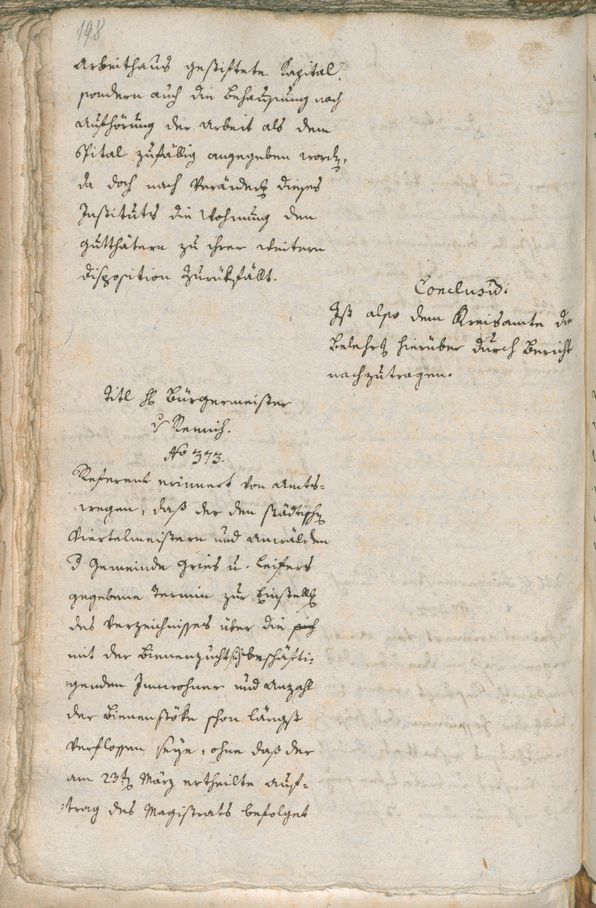 198
Arbeithaus gestiftete Kapital,
sondern auch die Behausung nach
Aufhörung der Arbeit als dem
Spital zufällig angegeben word,
da doch nach Veränder dieses
Instituts die Wohnung den
Gutthätern zu ihrer weitern
disposition zurükfällt.
Conclusũ:
Ist also dem Kreisamte die
Belehrg hierüber durch Bericht
nachzutragen.
Titl H Bürgermeister
v Remich.
No 373.
Referent erinnert von Amts=
wegen, daß der den städtischen
Viertelmeistern und Anwälden
d Gemeinde Gries u. Leifers
gegebene Termin zur Einstellg
des Verzeichnisses über die sich
mit der Bienenzucht beschäfti=
genden Innwohner und Anzahl
der Bienenstöke schon längst
verflossen seye, ohne daß der
am 23ten März ertheilte Auf=
:trag des Magistrats befolget